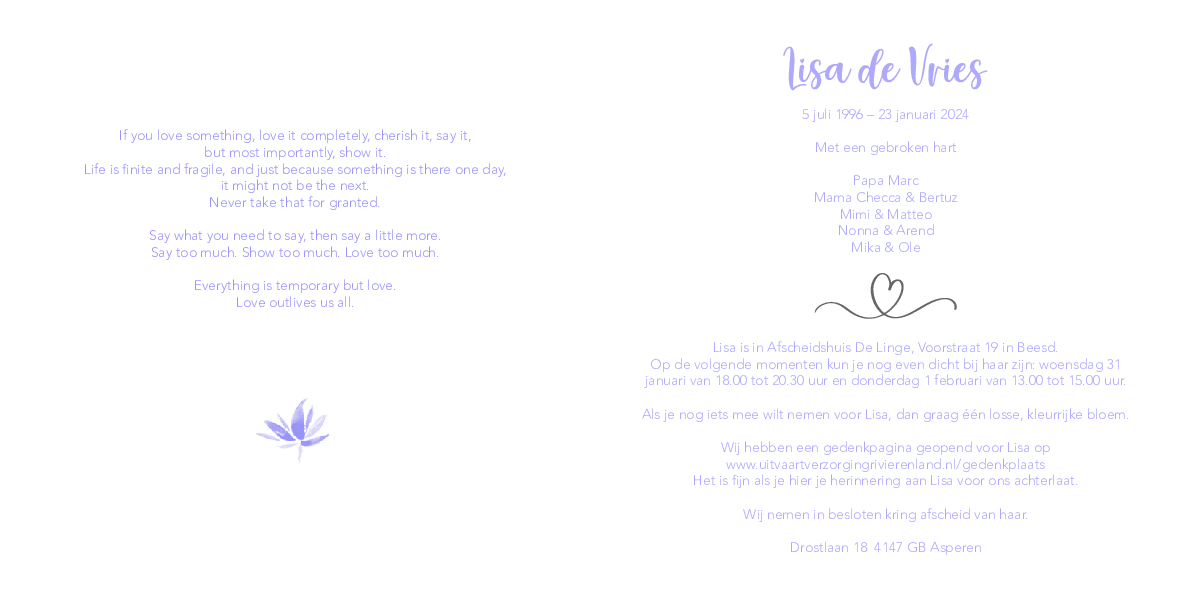 If you love something, love it completely, cherish it, say it,
but most importantly, show it.
Life is finite and fragile, and just because something is there one day,
it might not be the next.
Never take that for granted.
Say what you need to say, then say a little more.
Say too much. Show too much. Love too much.
Everything is temporary but love.
Love outlives us all.
Lisa de Vries
5 juli 1996 – 23 januari 2024
Met een gebroken hart
Papa Marc
Mama Checca & Bertuz
Mimi & Matteo
Nonna & Arend
Mika & Ole
Lisa is in Afscheidshuis De Linge, Voorstraat 19 in Beesd.
Op de volgende momenten kun je nog even dicht bij haar zijn: woensdag 31
januari van 18.00 tot 20.30 uur en donderdag 1 februari van 13.00 tot 15.00 uur.
Als je nog iets mee wilt nemen voor Lisa, dan graag één losse, kleurrijke bloem.
Wij hebben een gedenkpagina geopend voor Lisa op
www.uitvaartverzorgingrivierenland.nl/gedenkplaats
Het is fijn als je hier je herinnering aan Lisa voor ons achterlaat.
Wij nemen in besloten kring afscheid van haar.
Drostlaan 18 4147 GB Asperen